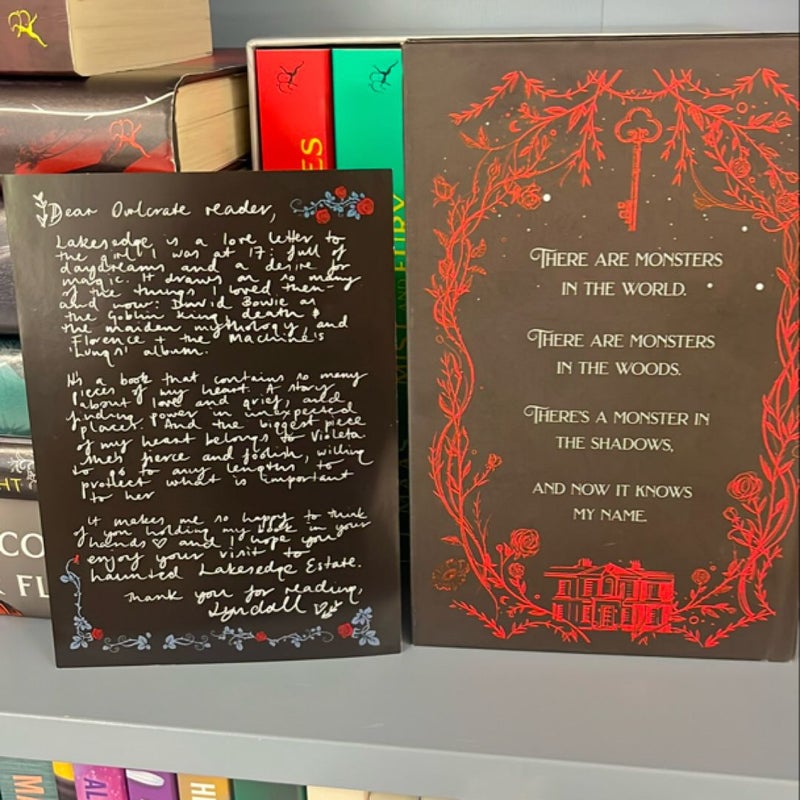 Dear Owlcrate reader,
Lakesedge is a love letter to
the girl I was at 17: full of
daydreams and a desire for
magic. It draws on so many
of the things I loved then-
and now: David Bowie as
the Goblin King, death &
the maiden mythology, and
Florence + the Machine's
'Lungs' album.
It's a book that contains so many
pieces of my heart. A story
about love and grief, and
finding power in unexpected
places. And the biggest piece
of my heart belongs to Violeta
she's fierce and foolish, willing
to go to any lengths to
protect what is important
to her
It makes me so happy to think
of you holding my book in your
hands ♡ and I hope you
enjoy your visit to
haunted Lakesedge Estate.
Thank you for reading,
Lyndall
THERE ARE MONSTERS
IN THE WORLD.
THERE ARE MONSTERS
IN THE WOODS.
THERE'S A MONSTER IN
THE SHADOWS,
AND NOW IT KNOWS
MY NAME.
ES
MIST AND FURY
MAAS
HT
CO
FL
MA
AL
HE